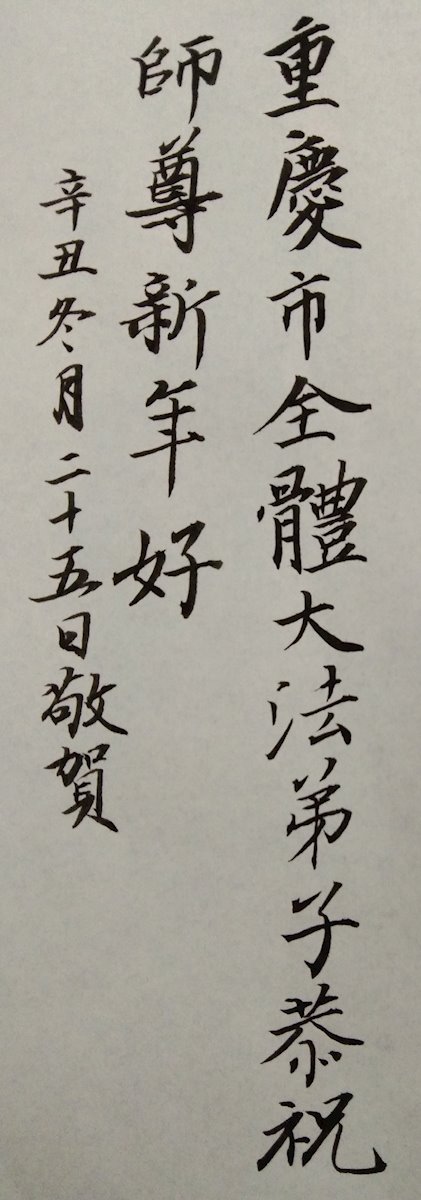 重慶市全體大法弟子恭祝
師尊新年好
辛丑冬月二十五日敬賀